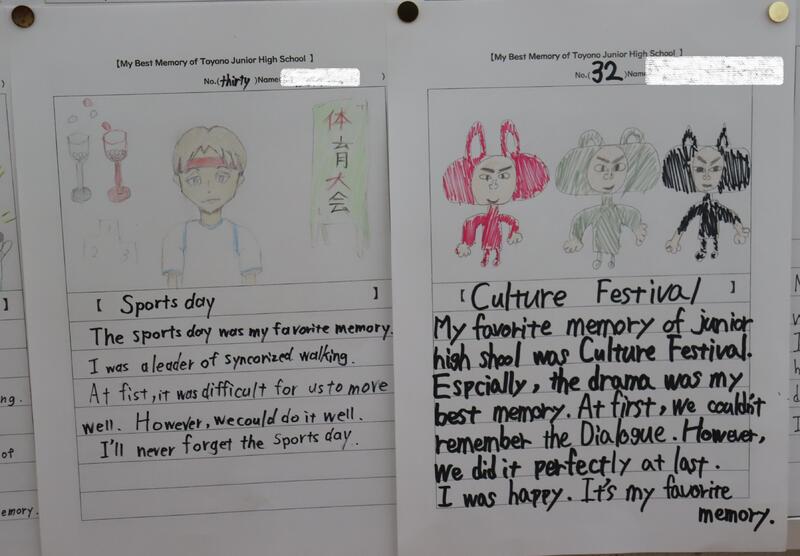 【My Best Memory of Toyono Junior High School 】
No.(thirty )Name( )
体育大会
1
2 3
【 Sports day 】
The sports day was my favorite memory.
I was a leader of syncorized walking.
At fist, it was difficult for us to move
well. However, we could do it well.
I'll never forget the sports day.
【My Best Memory of Toyono Junior High School 】
No.( 32 )Name
【 Culture Festival 】
My favorite memory of junior
high shool was Culture Festival.
Espcially, the drama was my
best memory. At first, we couldn't
remember the Dialogue. However,
we did it perfectly at last.
I was happy. It's my favorite
memory.
)
】
ng.
of
emory.